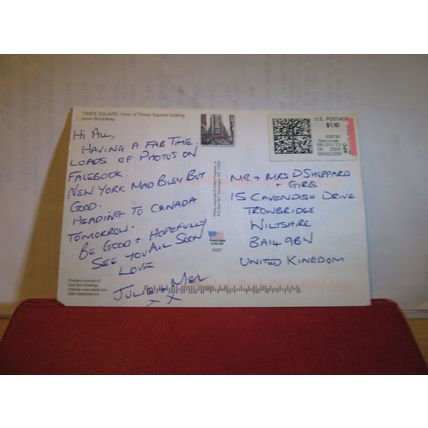 TIMES SQUARE: View of Times Square looking
down Broadway.
Hi ALL,
HAVING A FAB TIME.
LOADS OF PHOTOS ON
FACEBOOK.
NEW YORK MAD BUSY BUT
GOOD.
HEADING TO CANADA
TOMORROW.
BE GOOD + HOPEFULLY
SEE YOU ALL SOON
LOVE
JULIE + MEL
X X
U.S. POSTAGE
$1.10
MR + MRS D SHEPPARD
+ GIRLS
15 CAVENDISH DRIVE
TROWBRIDGE
WILTSHIRE
BA14 9BN
UNITED KINGDOM